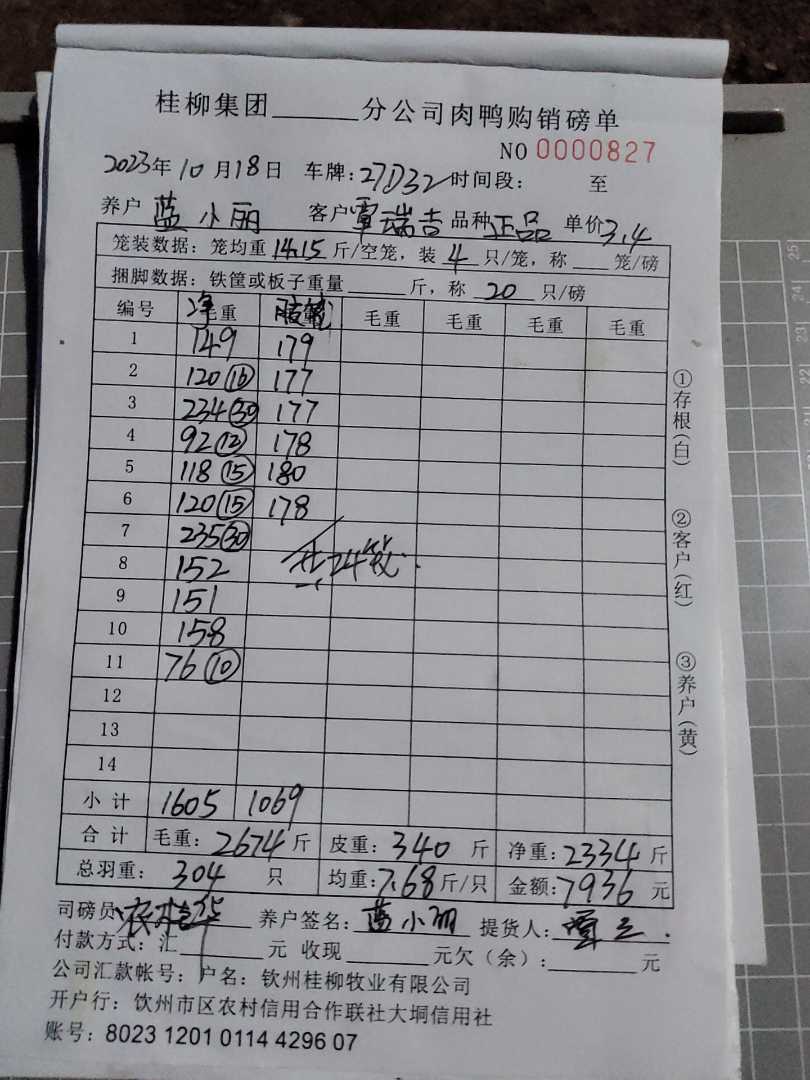 桂柳集团______分公司肉鸭购销磅单
NO 0000827
2023年10月18日 车牌:27D32 时间段: 至
养户 蓝小丽 客户 覃瑞吉 品种 正品 单价 3.4
笼装数据:笼均重 14.15 斤/空笼,装 4 只/笼,称___笼/磅
捆脚数据:铁筐或板子重量______斤,称 20 只/磅
编号 净毛重 毛重 毛重 毛重 毛重
1 149 179
2 120 (16) 177
3 234 (30) 177
4 92 (12) 178
5 118 (15) 180
6 120 (15) 178
7 235 (30)
8 152 共24笼
9 151
10 158
11 76 (10)
12
13
14
小计 1605 1069
合计 毛重:2674斤 皮重:340斤 净重:2334斤
总羽重:304只 均重:7.68斤/只 金额:7936元
司磅员: 农桂华 养户签名:蓝小丽 提货人:覃
付款方式:汇______元 收现______元欠(余):______元
公司汇款帐号:户名:钦州桂柳牧业有限公司
开户行:钦州市区农村信用合作联社大垌信用社
账号:8023 1201 0114 4296 07
①存根(白)
②客户(红)
③养户(黄)